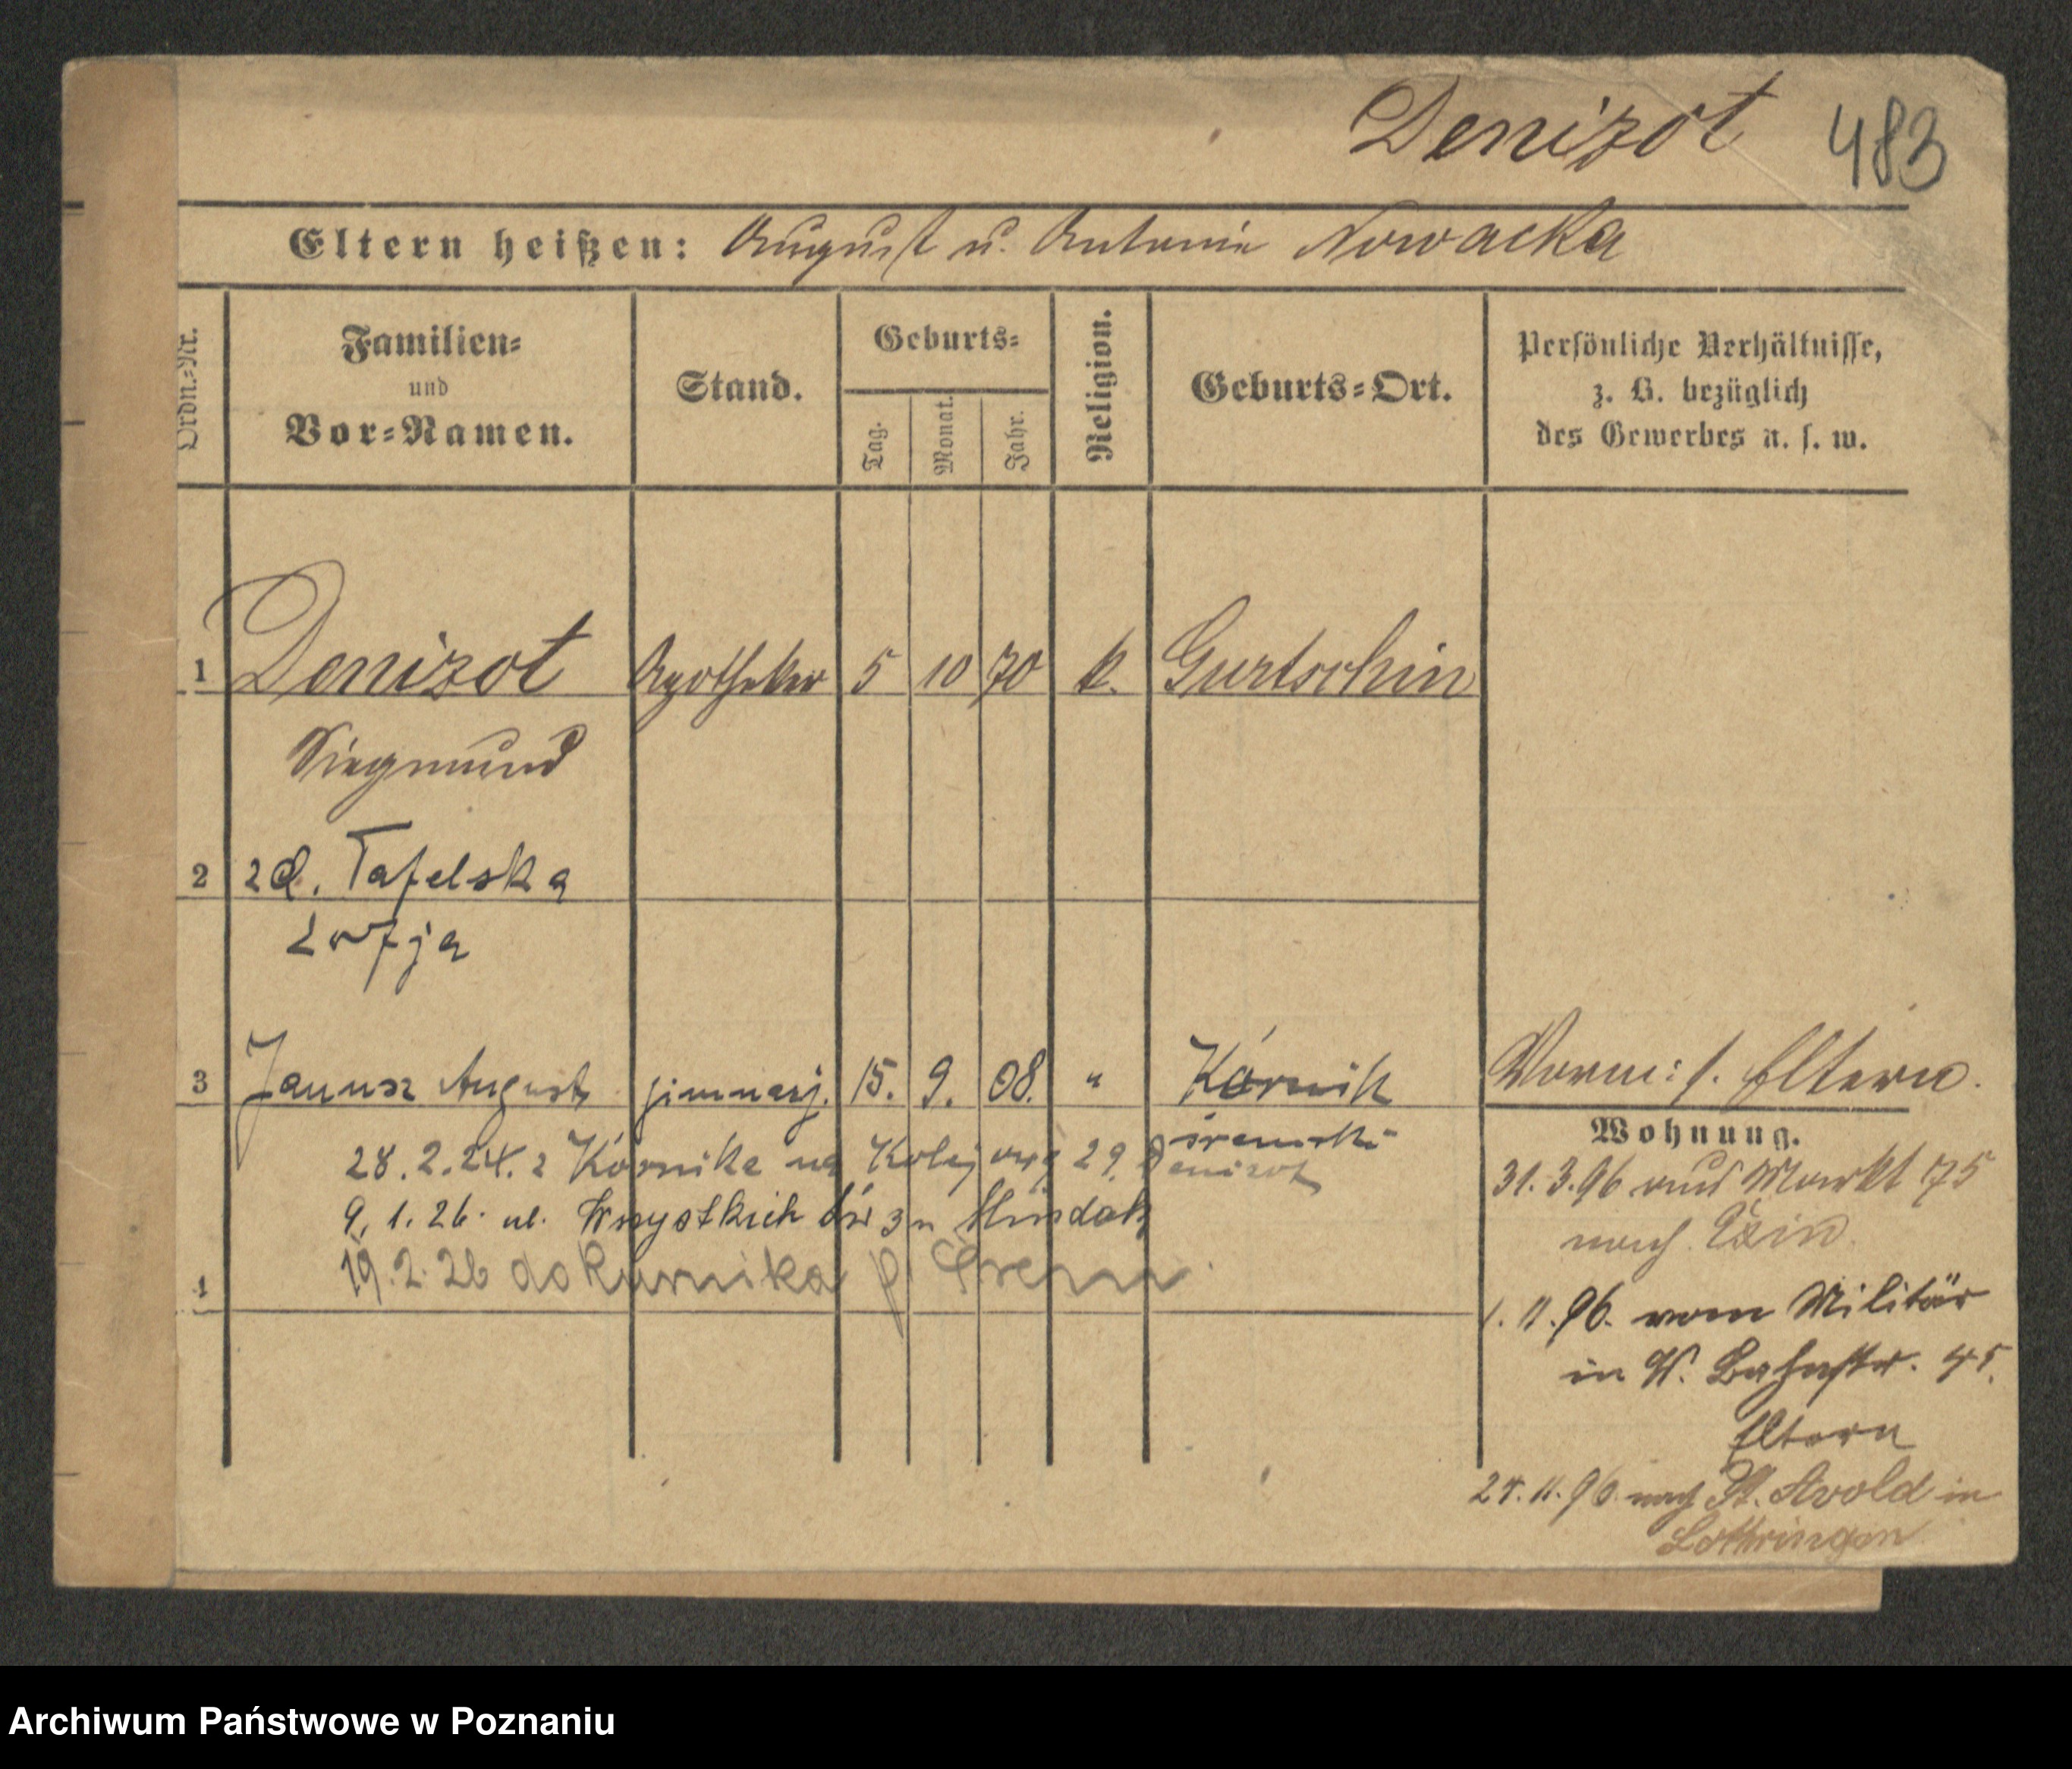 Denizot 483
Eltern heißen: August u. Antonie Nowacka
Ordn.-Nr.
Familien-
und
Vor-Namen.
Stand.
Geburts-
Tag.
Monat.
Jahr.
Religion.
Geburts-Ort.
Persönliche Verhältnisse,
z. B. bezüglich
des Gewerbes u. s. w.
1 Denizot Apotheker 5 10 70 k. Gurtschin
Siegmund
2 zd. Tafelska
Zofja
3 Janusz August gimnazj. 15. 9. 08. " Kórnik
śremski
Vorm: s. Eltern.
28.2.24. z Kórnika na Kolejową 29. Denizot
9.1.26. ul. Wszystkich Św 3a
19.2.26 do Kurnika p. Śrem
4
Wohnung.
31.3.96 aus Markt 75
nach Exin.
1.11.96. vom Militär
in W. Bahnstr. 45.
Eltern
24.11.96. nach St. Avold in
Lothringen
Archiwum Państwowe w Poznaniu